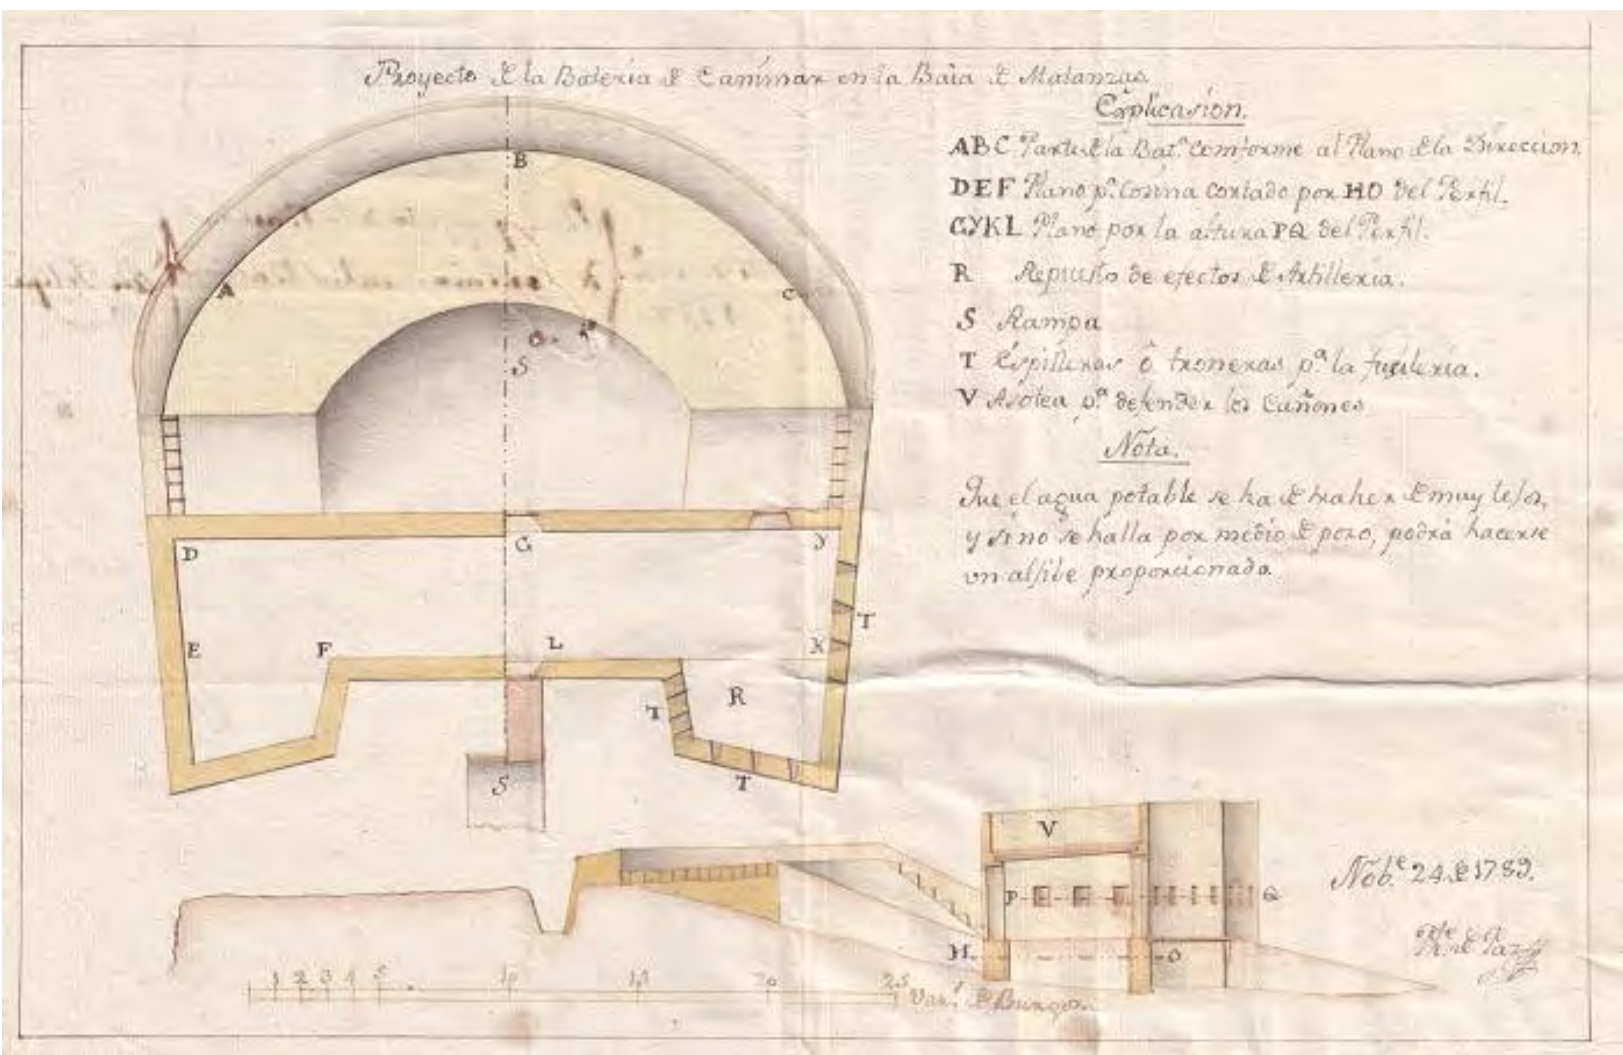 Proyecto de la Bateria de Canimar en la Baia de Matanzas
Explicasion.
ABC Parte de la Bat.ª comforme al Plano de la Direccion.
DEF Plano p.r Cosina cortado por HO del Perfil.
GYKL Plano por la altura PQ del Perfil.
R Repuesto de efectos de Artilleria.
S Rampa
T Espilleras ô troneras p.ª la fusileria.
V Asotea p.ª defender los Cañones
Nota.
Que el agua potable se ha de traher de muy lejos,
y si no se halla por medio de pozo, podrá hacerse
un aljibe proporcionado.
B
A
C
S
D
G
Y
E
F
L
K
T
R
T
T
S
V
P
Q
H
O
Nob.e 24 de 1789.
1 2 3 4 5 10 15 20 25
Var.s de Burgos